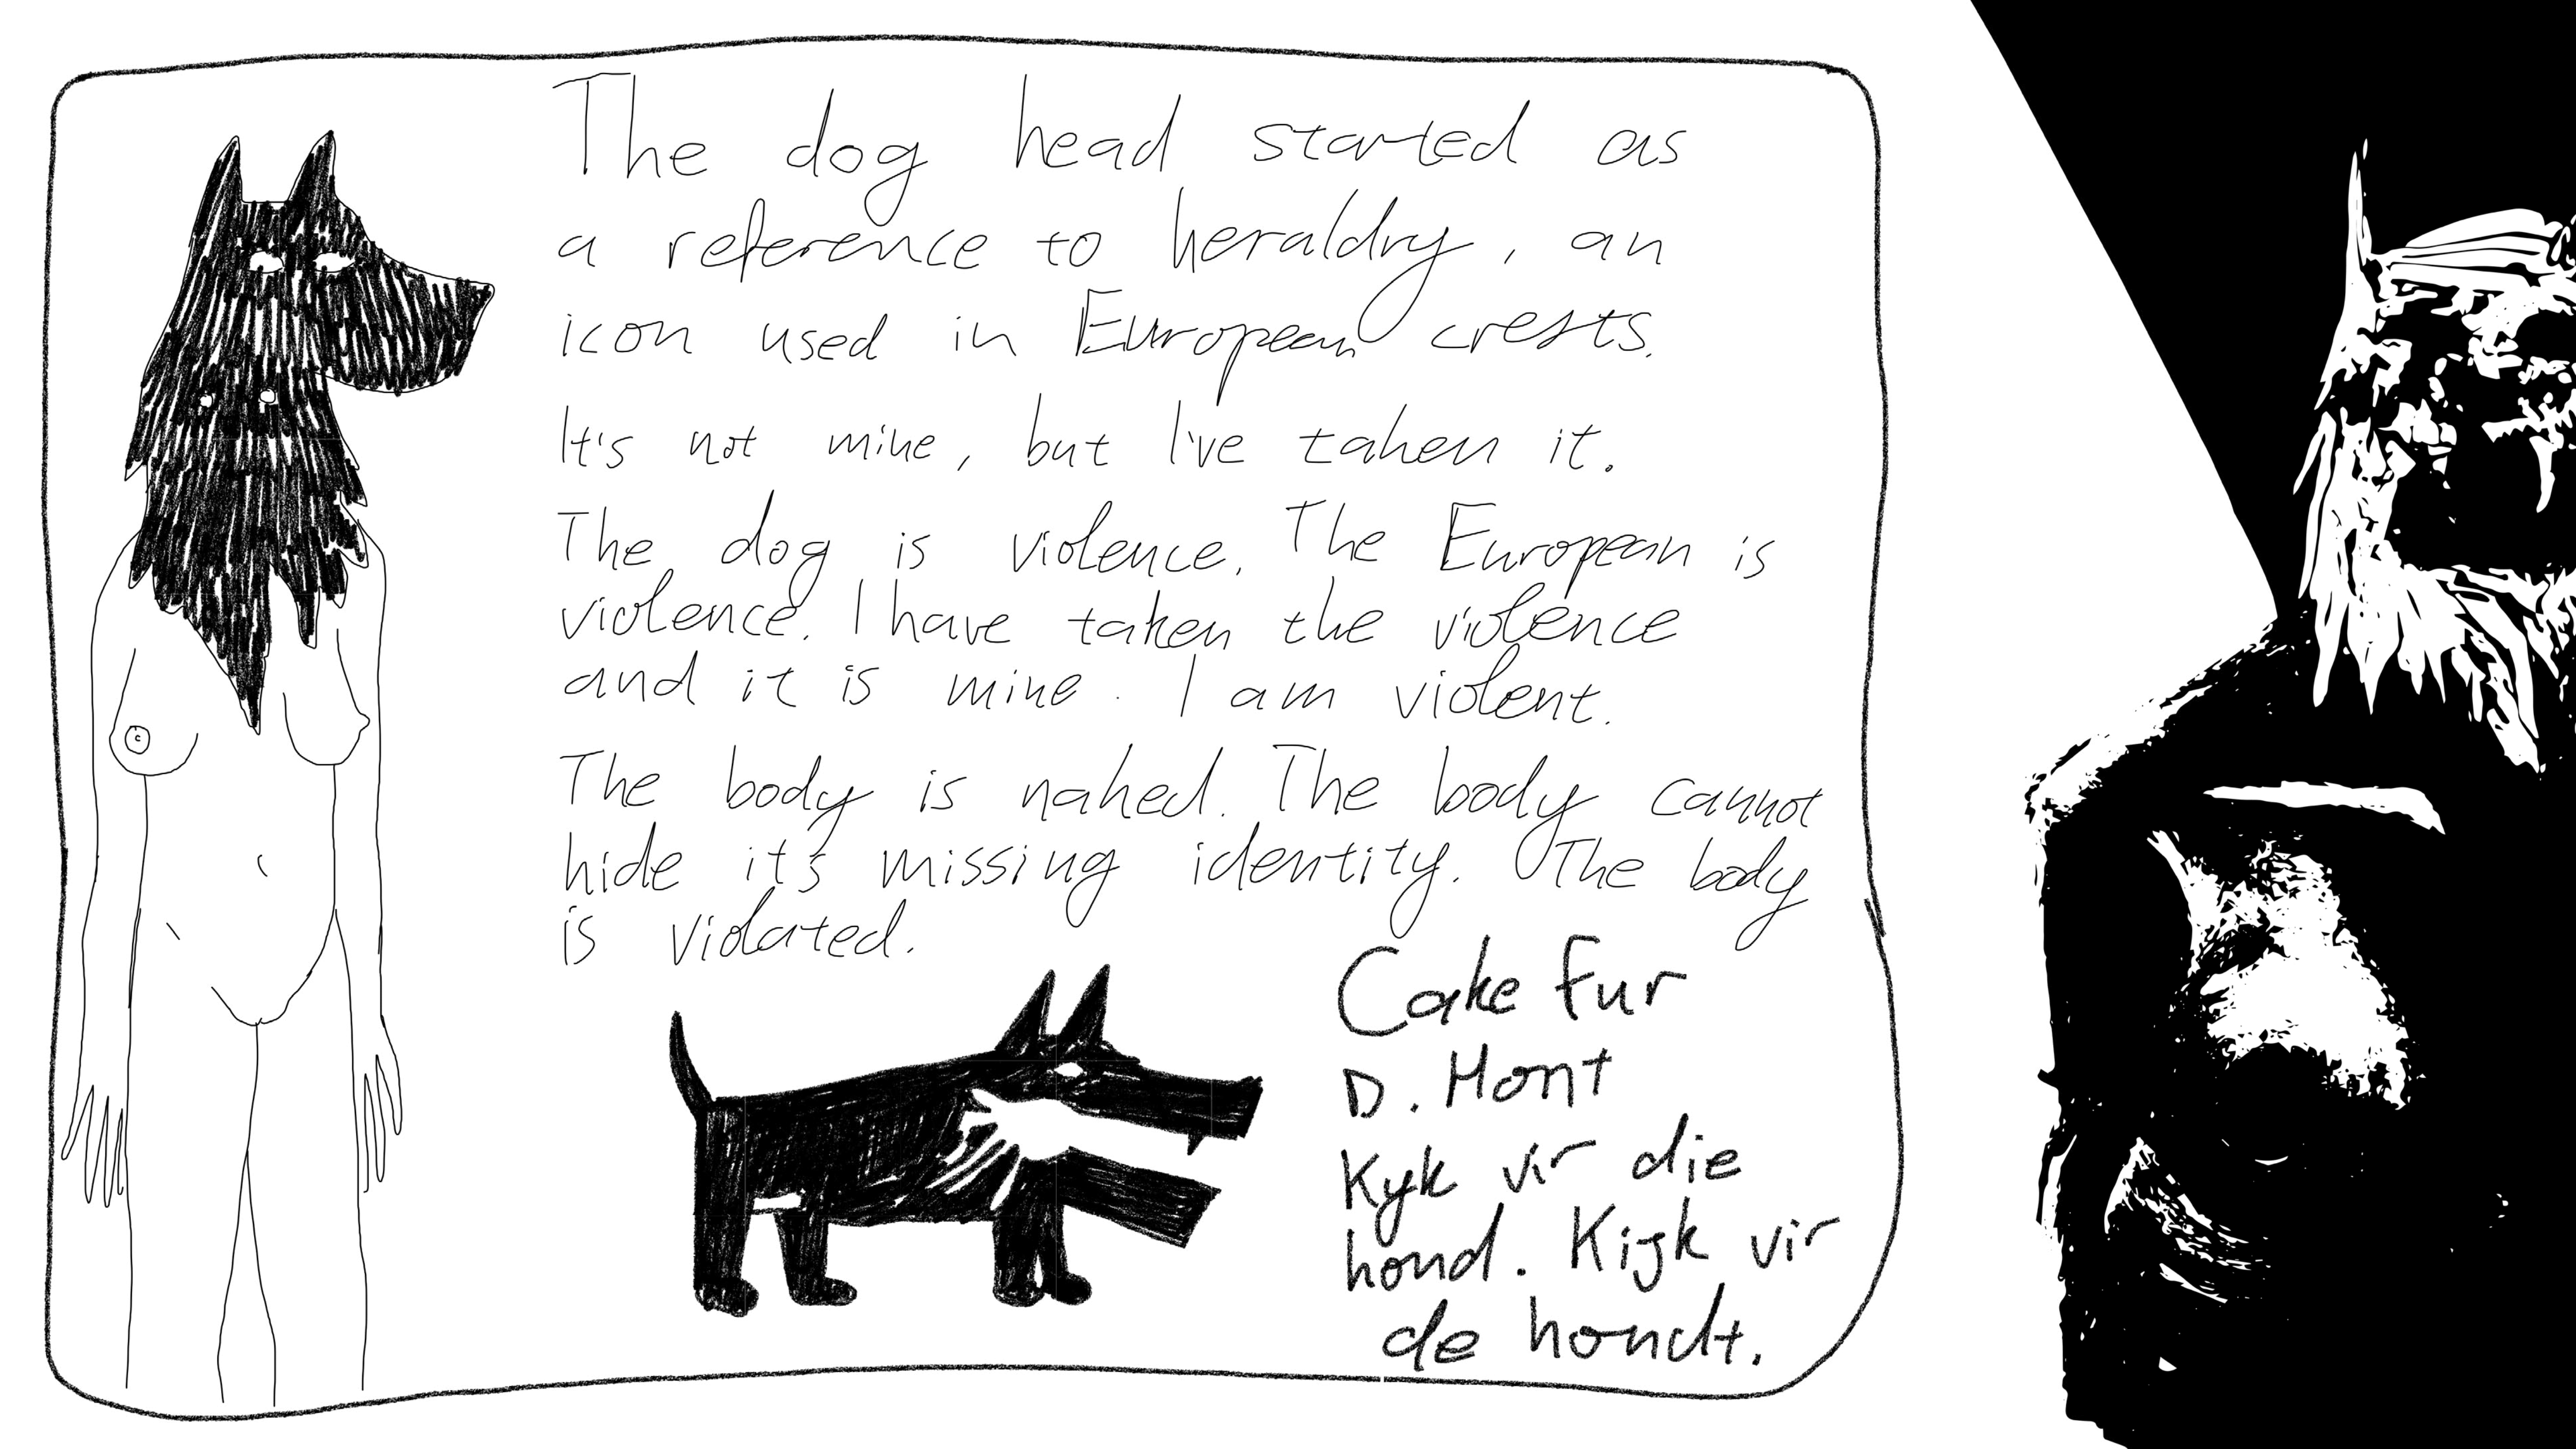 The dog head started as
a reference to heraldry, an
icon used in European crests.
It's not mine, but I've taken it.
The dog is violence. The European is
violence. I have taken the violence
and it is mine. I am violent.
The body is naked. The body cannot
hide it's missing identity. The body
is violated.
Cake Fur
D. Hont
Kyk vir die
hond. Kijk vir
de hondt.